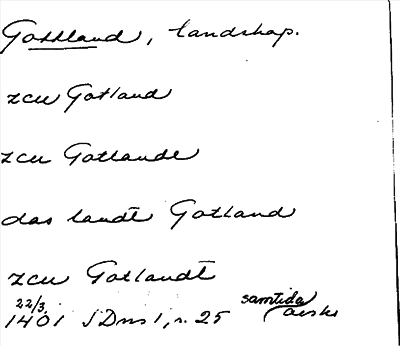 Gottland, landskap.
zcu Gotland
zcu Gotlande
das landt Gotland
zcu Gotlandt
22/3 samtida
1401 SDns 1, s. 25 avskr